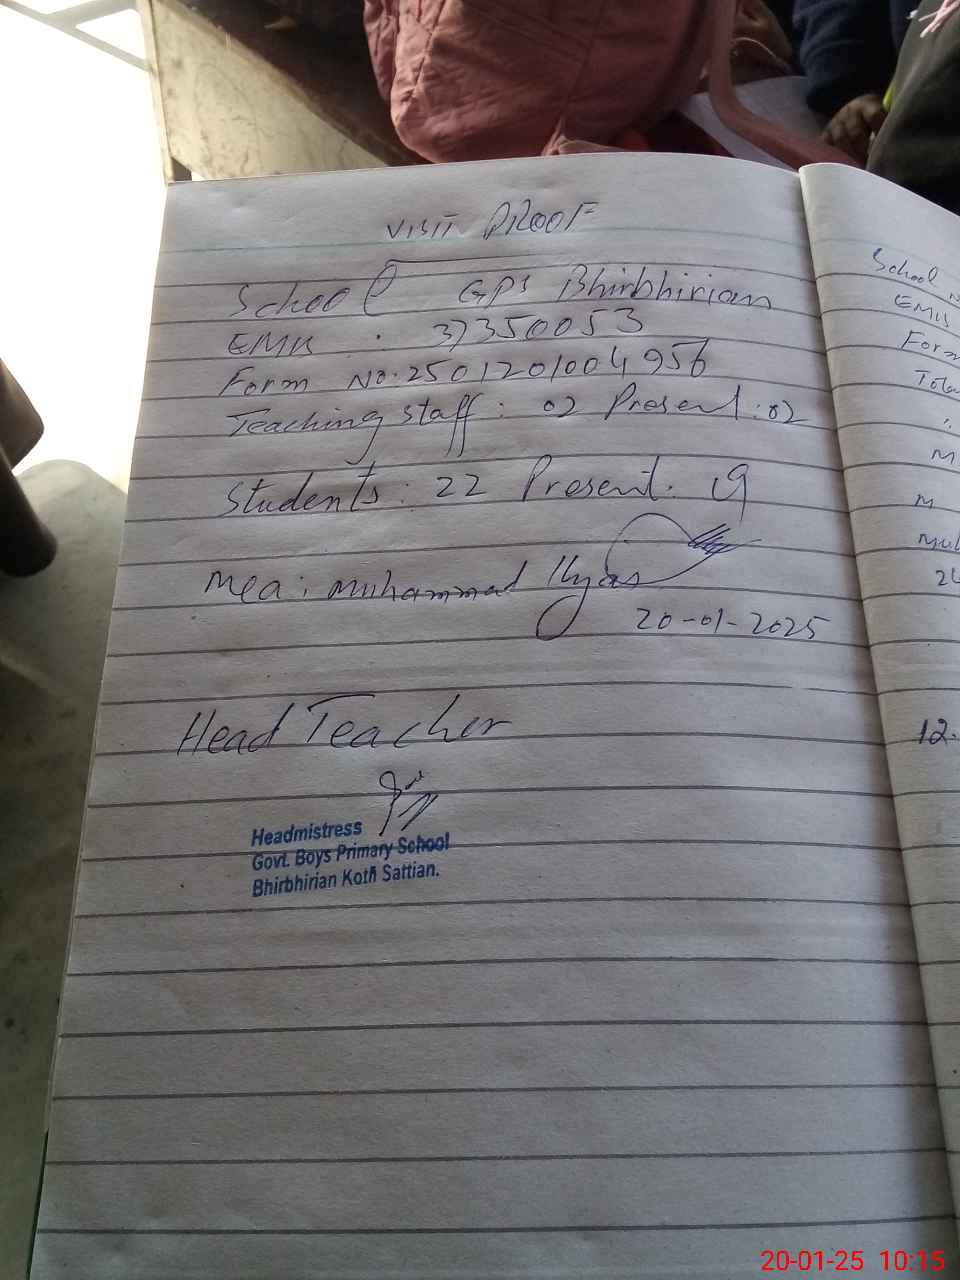 VISIT PROOF
School GPS Bhirbhirian
EMIS : 37350053
Form No. 2501201004956
Teaching staff : 02 Present : 02
Students : 22 Present. 19
Mea : Muhammad Ilyas
20-01-2025
Head Teacher
Headmistress
Govt. Boys Primary School
Bhirbhirian Kotli Sattian.
School
EMIS
Form
Tota
M
M
Mu
12.
20-01-25 10:15